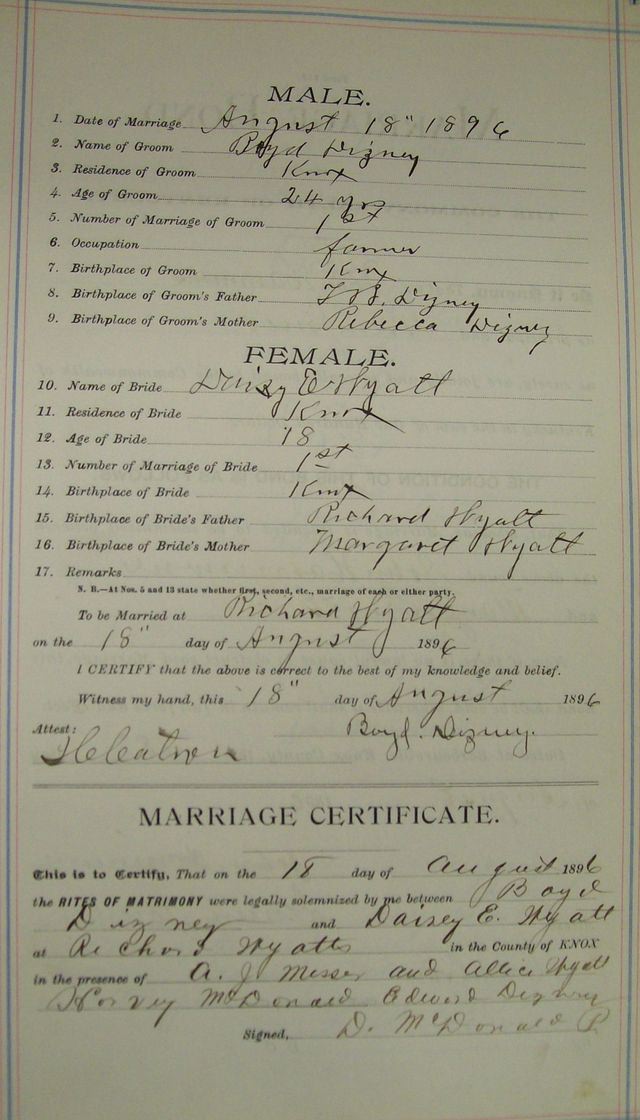 MALE.
1. Date of Marriage August 18" 1896
2. Name of Groom Boyd Dizney
3. Residence of Groom Knox
4. Age of Groom 24 yrs
5. Number of Marriage of Groom 1st
6. Occupation farmer
7. Birthplace of Groom Knox
8. Birthplace of Groom's Father Dizney
9. Birthplace of Groom's Mother Rebecca Dizney
FEMALE.
10. Name of Bride Daisy E Wyatt
11. Residence of Bride Knox
12. Age of Bride 18
13. Number of Marriage of Bride 1st
14. Birthplace of Bride Knox
15. Birthplace of Bride's Father Richard Wyatt
16. Birthplace of Bride's Mother Margaret Wyatt
17. Remarks
N. B.—At Nos. 5 and 13 state whether first, second, etc., marriage of each or either party.
To be Married at Richard Wyatt
on the 18" day of August 1896
I CERTIFY that the above is correct to the best of my knowledge and belief.
Witness my hand, this 18" day of August 1896
Attest: Boyd. Dizney.
MARRIAGE CERTIFICATE.
This is to Certify, That on the 18 day of August 1896
the RITES OF MATRIMONY were legally solemnized by me between Boyd
Dizney and Daisey E. Wyatt
at Richard Wyatts in the County of KNOX
in the presence of A. J Messer and Allice Wyatt
Harvey McDonald Edward Dizney
Signed, D. McDonald